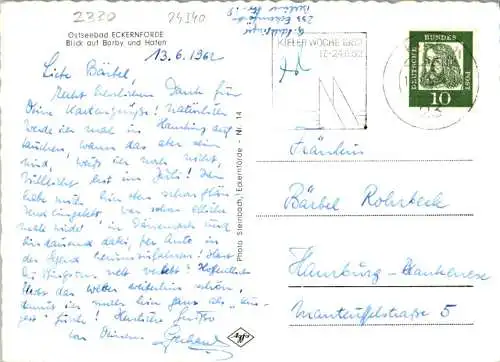 2330
24140
Ostseebad ECKERNFÖRDE
Blick auf Borby und Hafen
13.6.1962
Liebe Bärbel,
recht herzlichen Dank für
Deine Kartengrüße! Natürlich
werde ich mal in Hamburg auf
tauchen, wann das aber sein
wird, weiß ich noch nicht,
vielleicht erst im Juli! Ich
habe mich hier schon
mal wieder in Dänemark und
bin dauernd dabei, per Auto in
der Gegend herumzufahren! Hast
Du Pfingsten nett verlebt? Hoffentlich
bleibt das Wetter weiterhin schön,
sonst ist man hier ganz als "aus-
Herzliche Grüße
von Deinem Gerhard
Photo Steinbach, Eckernförde - Nr. 14
Agfa
233 Eckernförde
Berliner Str.
KIELER WOCHE 1962
17.-24.6.62
DEUTSCHE BUNDESPOST
10
Fräulein
Bärbel Rohrbeck
Hamburg-Blankenese
Manteuffelstraße 5